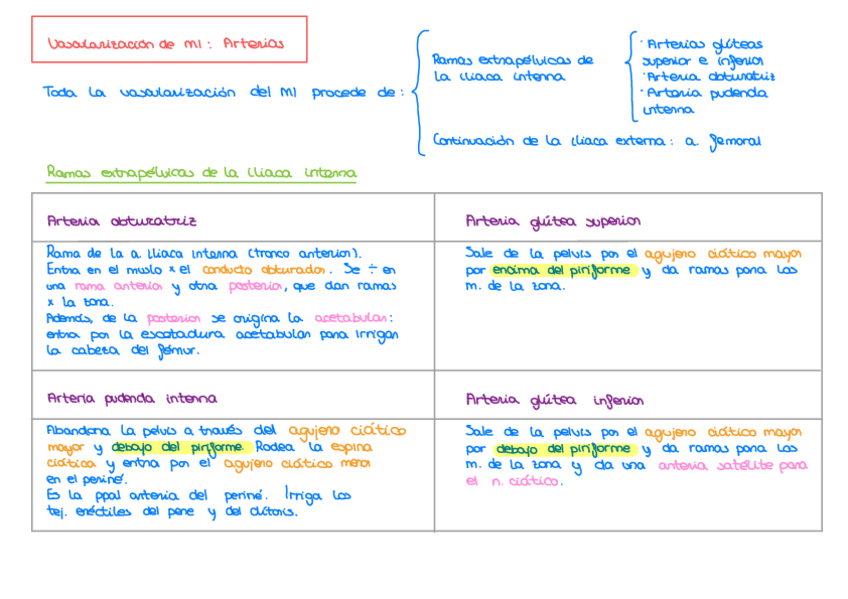 Vascularización de MI: Arterias
Toda la vascularización del MI procede de:
Ramas extrapélvicas de
la ilíaca interna
· Arterias glúteas
superior e inferior
· Arteria obturatriz
· Arteria pudenda
interna
Continuación de la ilíaca externa: a. femoral
Ramas extrapélvicas de la ilíaca interna
Arteria obturatriz
Rama de la a. ilíaca interna (tronco anterior).
Entra en el muslo x el conducto obturador. Se ÷ en
una rama anterior y otra posterior, que dan ramas
x la zona.
Además, de la posterior se origina la acetabular:
entra por la escotadura acetabular para irrigar
la cabeza del fémur.
Arteria glútea superior
Sale de la pelvis por el agujero ciático mayor
por encima del piriforme y da ramas para los
m. de la zona.
Arteria pudenda interna
Abandona la pelvis a través del agujero ciático
mayor y debajo del piriforme. Rodea la espina
ciática y entra por el agujero ciático menor
en el periné.
Es la ppal arteria del periné. Irriga los
tej. eréctiles del pene y del clítoris.
Arteria glútea inferior
Sale de la pelvis por el agujero ciático mayor
por debajo del piriforme y da ramas para los
m. de la zona y da una arteria satélite para
el n. ciático.